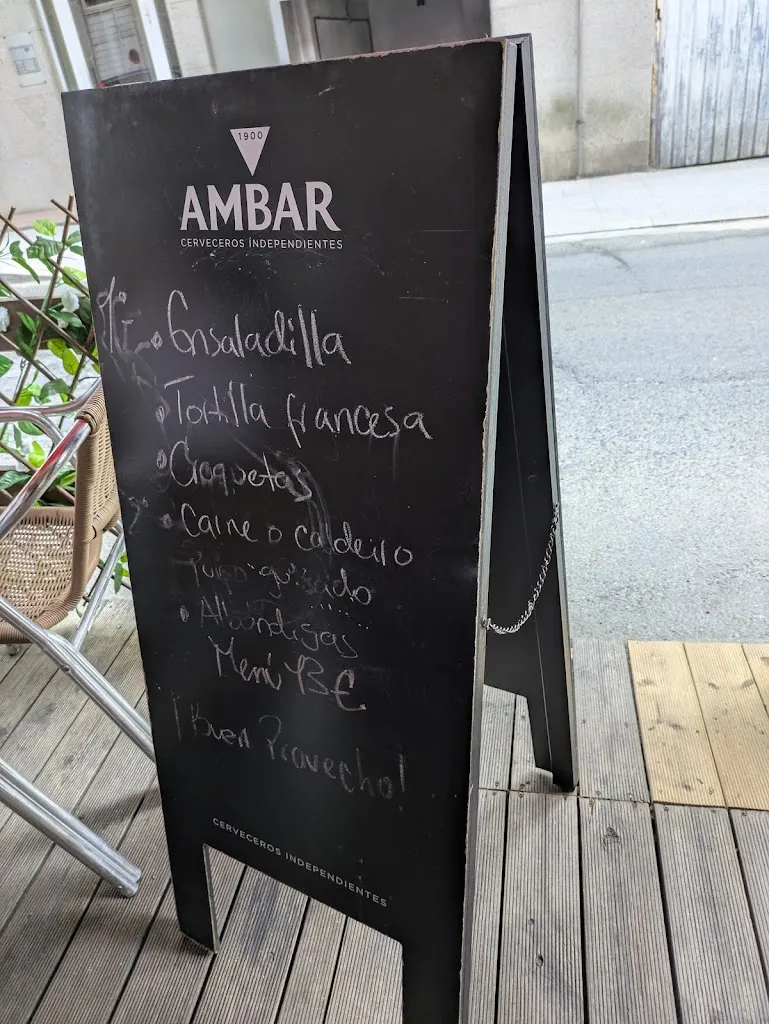 1900
AMBAR
CERVECEROS INDEPENDIENTES
Ensaladilla
Tortilla francesa
Croquetas
2º Carne o caldeiro
guisado
Albondigas
Menú 13€
¡Buen Provecho!
CERVECEROS INDEPENDIENTES